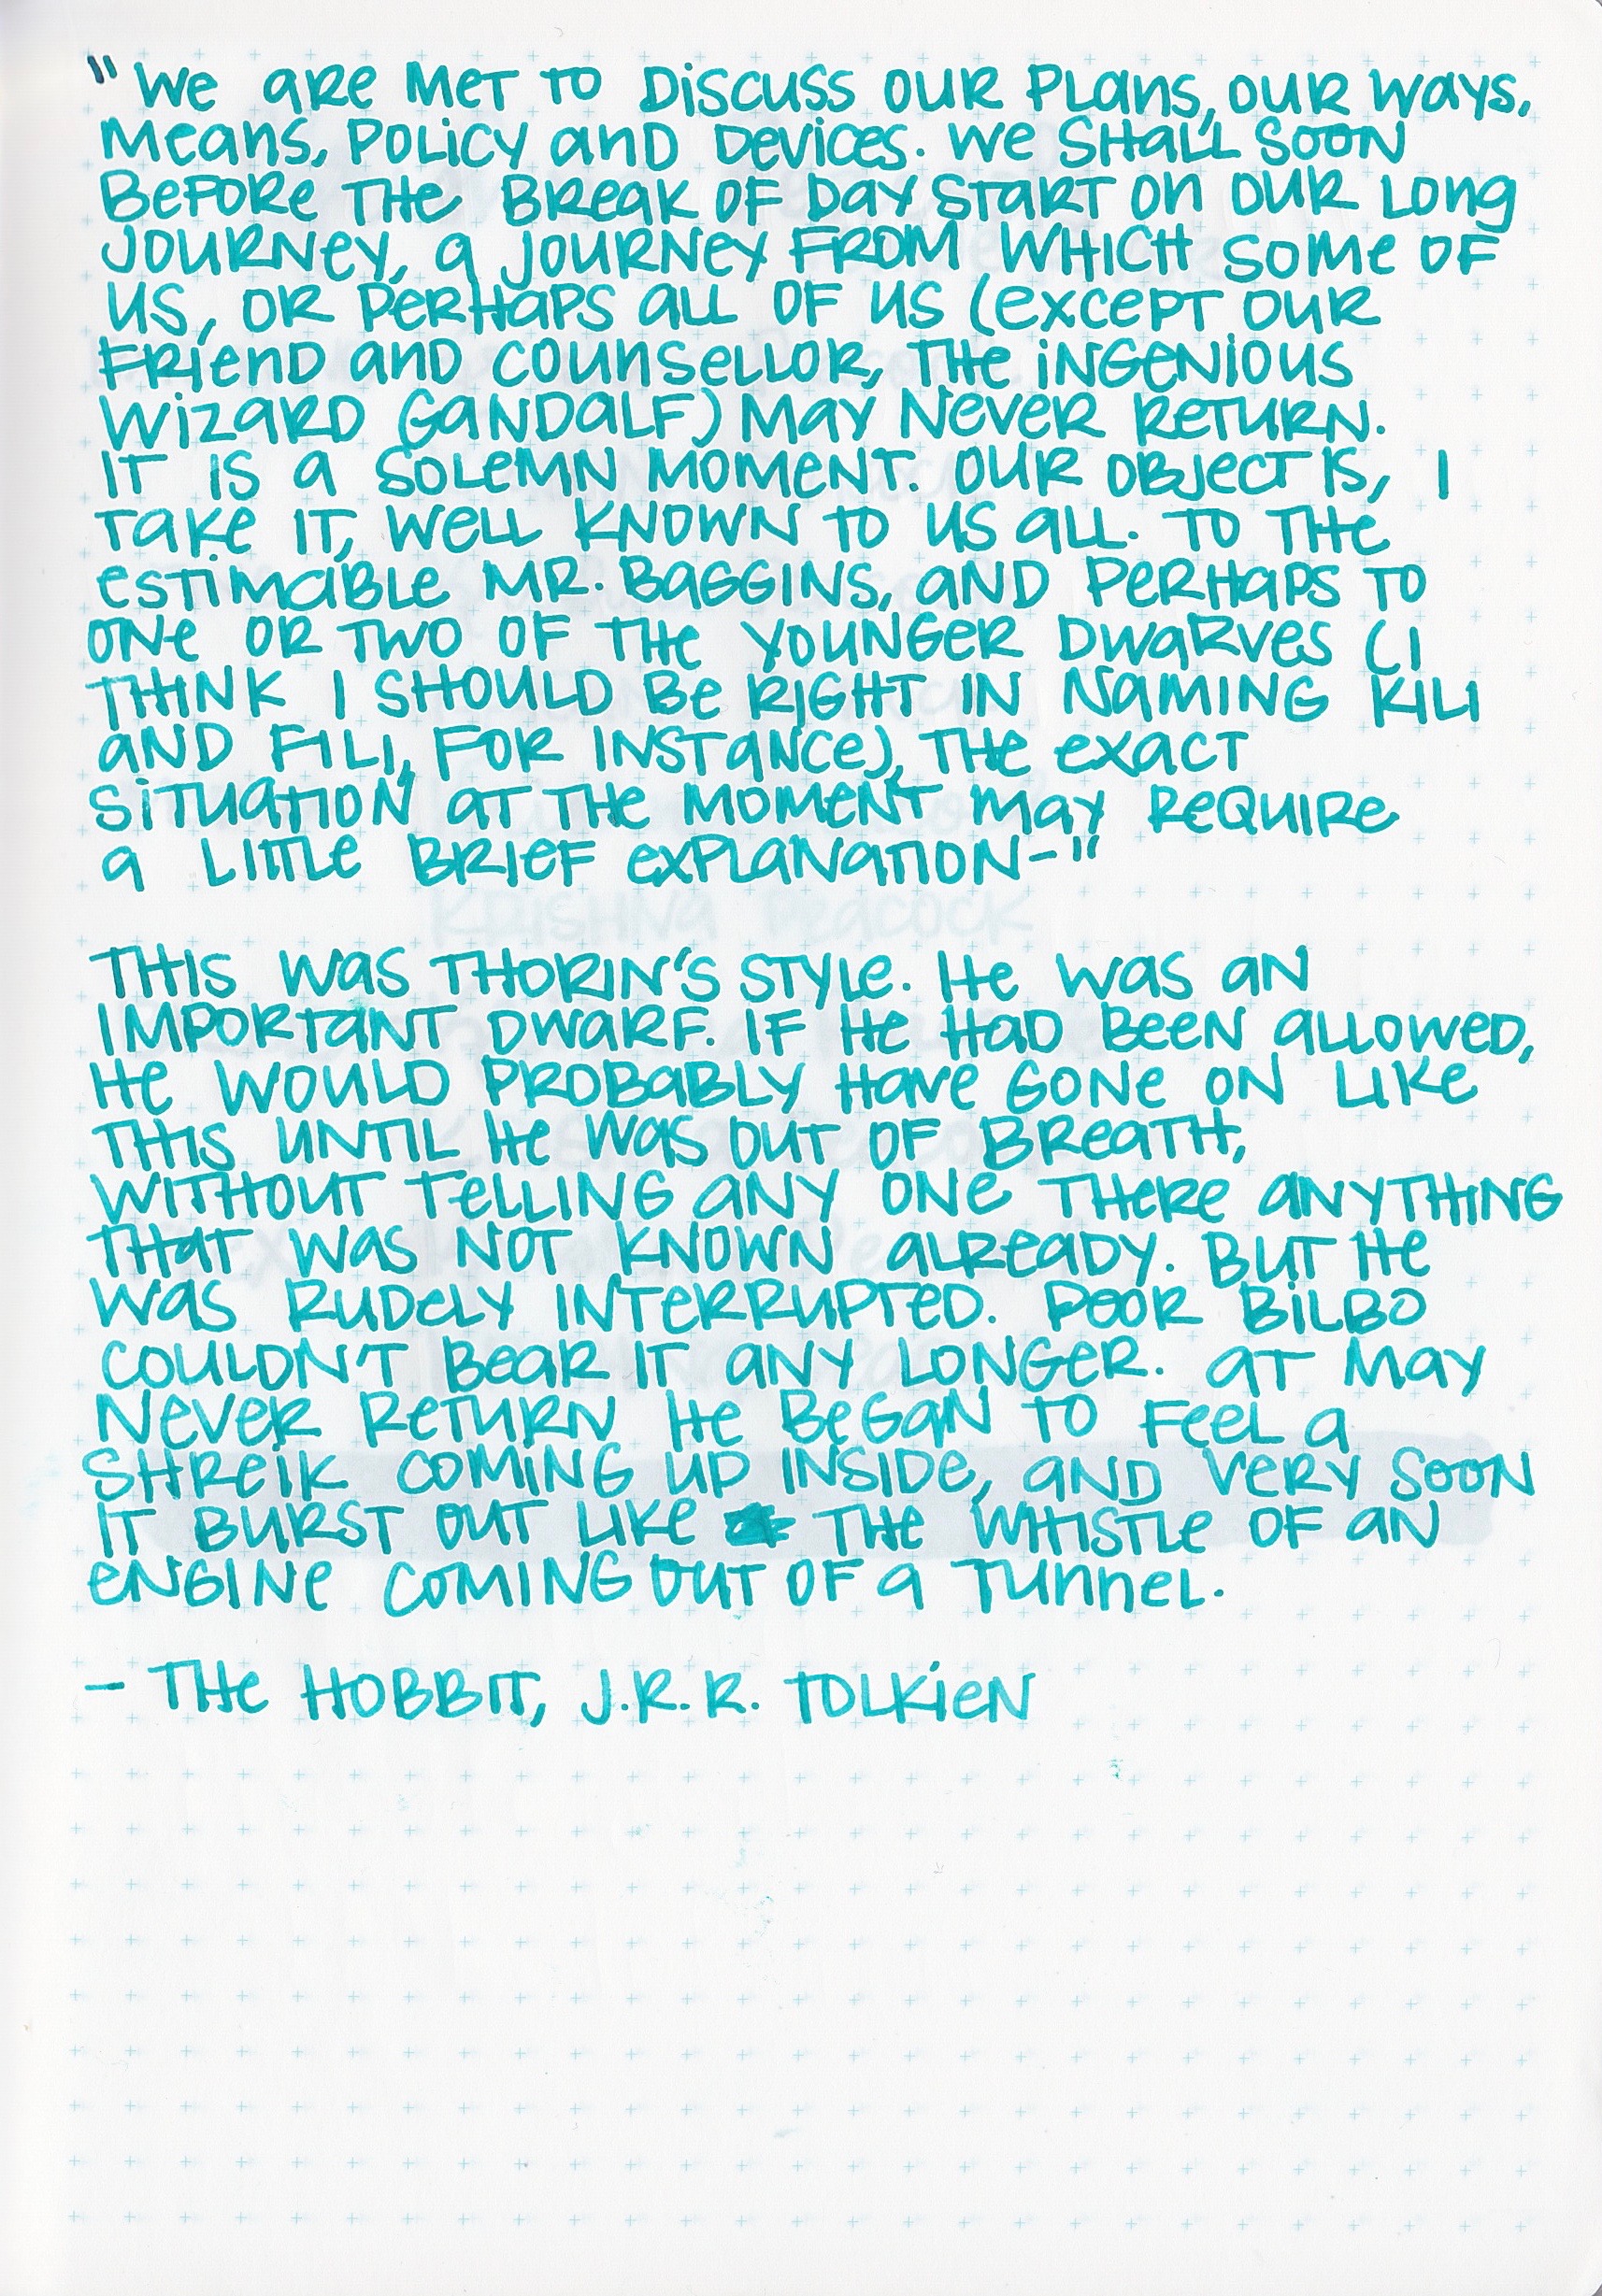 "We are met to discuss our plans, our ways,
means, policy and devices. We shall soon
before the break of day start on our long
journey, a journey from which some of
us, or perhaps all of us (except our
friend and counsellor, the ingenious
wizard Gandalf) may never return.
It is a solemn moment. Our object is, I
take it, well known to us all. To the
estimable Mr. Baggins, and perhaps to
one or two of the younger dwarves (I
think I should be right in naming Kili
and Fili, for instance), the exact
situation at the moment may require
a little brief explanation-"
Krishna Peacock
This was Thorin's style. He was an
important dwarf. If he had been allowed,
he would probably have gone on like
this until he was out of breath,
without telling any one there anything
that was not known already. But he
was rudely interrupted. Poor Bilbo
couldn't bear it any longer. At may
never return he began to feel a
shreik coming up inside, and very soon
it burst out like the whistle of an
engine coming out of a tunnel.
- The Hobbit, J.R.R. Tolkien